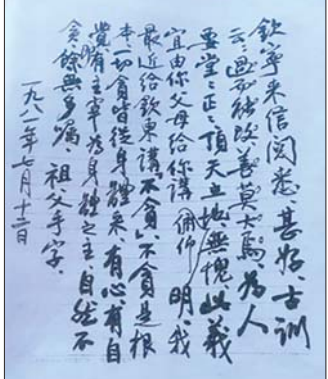 欽寧来信阅悉、甚好、古训
云：過而能改、善莫大焉、为人
要堂々正々、頂天立地、無愧、此義
宜由你父母给你講（佩仰）明、我
最近给欽東講「不贪」、不贪是根
本、一切贪皆從身體来、有心有自
覺、有主宰為身體之主、自然不
贪、餘無多嘱、祖父手字、
一九八一年七月十二日